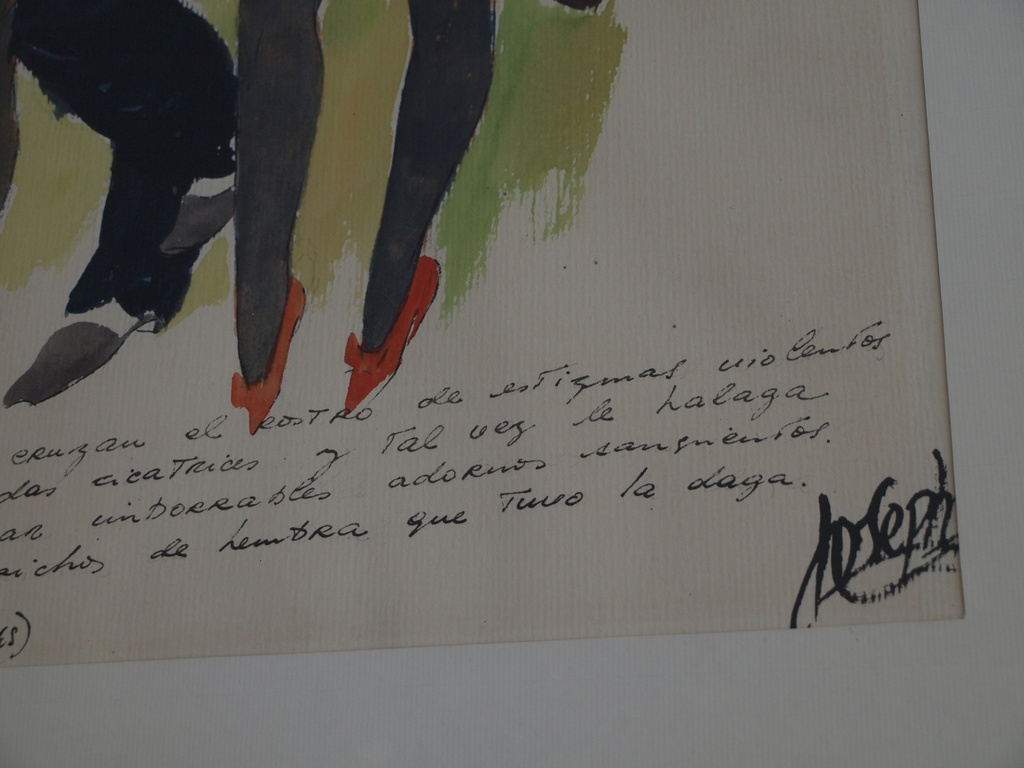 cruzan el rostro de estigmas violentos
das cicatrices y tal vez le halaga
ar imborrables adornos sangrientos.
ichos de hembra que tuvo la daga.
Joseph
es)